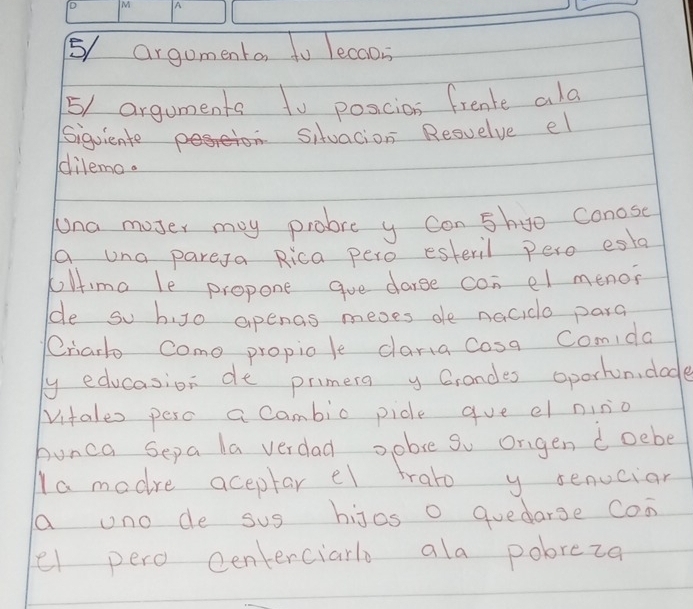 D M A
5/ argomenta tu leccon
5/ argumenta tu poscion frente ala
siguiente posreion situacion Resuelve el
dilema.
Una mujer muy probre y con 5 hijo conose
a una pareja Rica pero esteril pero esta
ultima le propone que darse con el menor
de su hijo apenas meses de nacido para
Criarlo como propio le daria casa comida
y educasion de primera y Grandes oportunidade
vitales pero a cambio pide que el nino
nunca sepa la verdad sobre su origen ¿ Debe
la madre aceptar el trato y renuciar
a uno de sus hijos o quedarse con
el pero centenciarlo ala pobreza